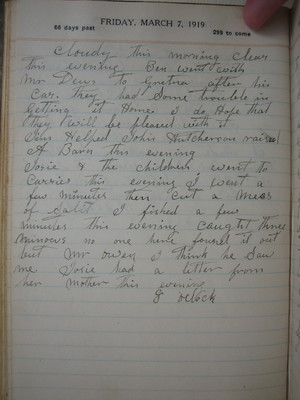 FRIDAY, MARCH 7, 1919
66 days past
299 to come
Cloudy this morning clear
this evening Ben went with
Mr to Gretna after his
car. they had some trouble in
getting it Home. I do Hope that
they will be pleased with it
Jim Helped John Hutcherson raise
A Barn this evening
Josie & the children went to
Carries this evening I went a
few minutes then cut a mess
of I fished a few
minutes this evening caught three
Minows no one here found it out
but Mr Owen I think he saw
me Josie had a letter from
her Mother this evening
8 oclock